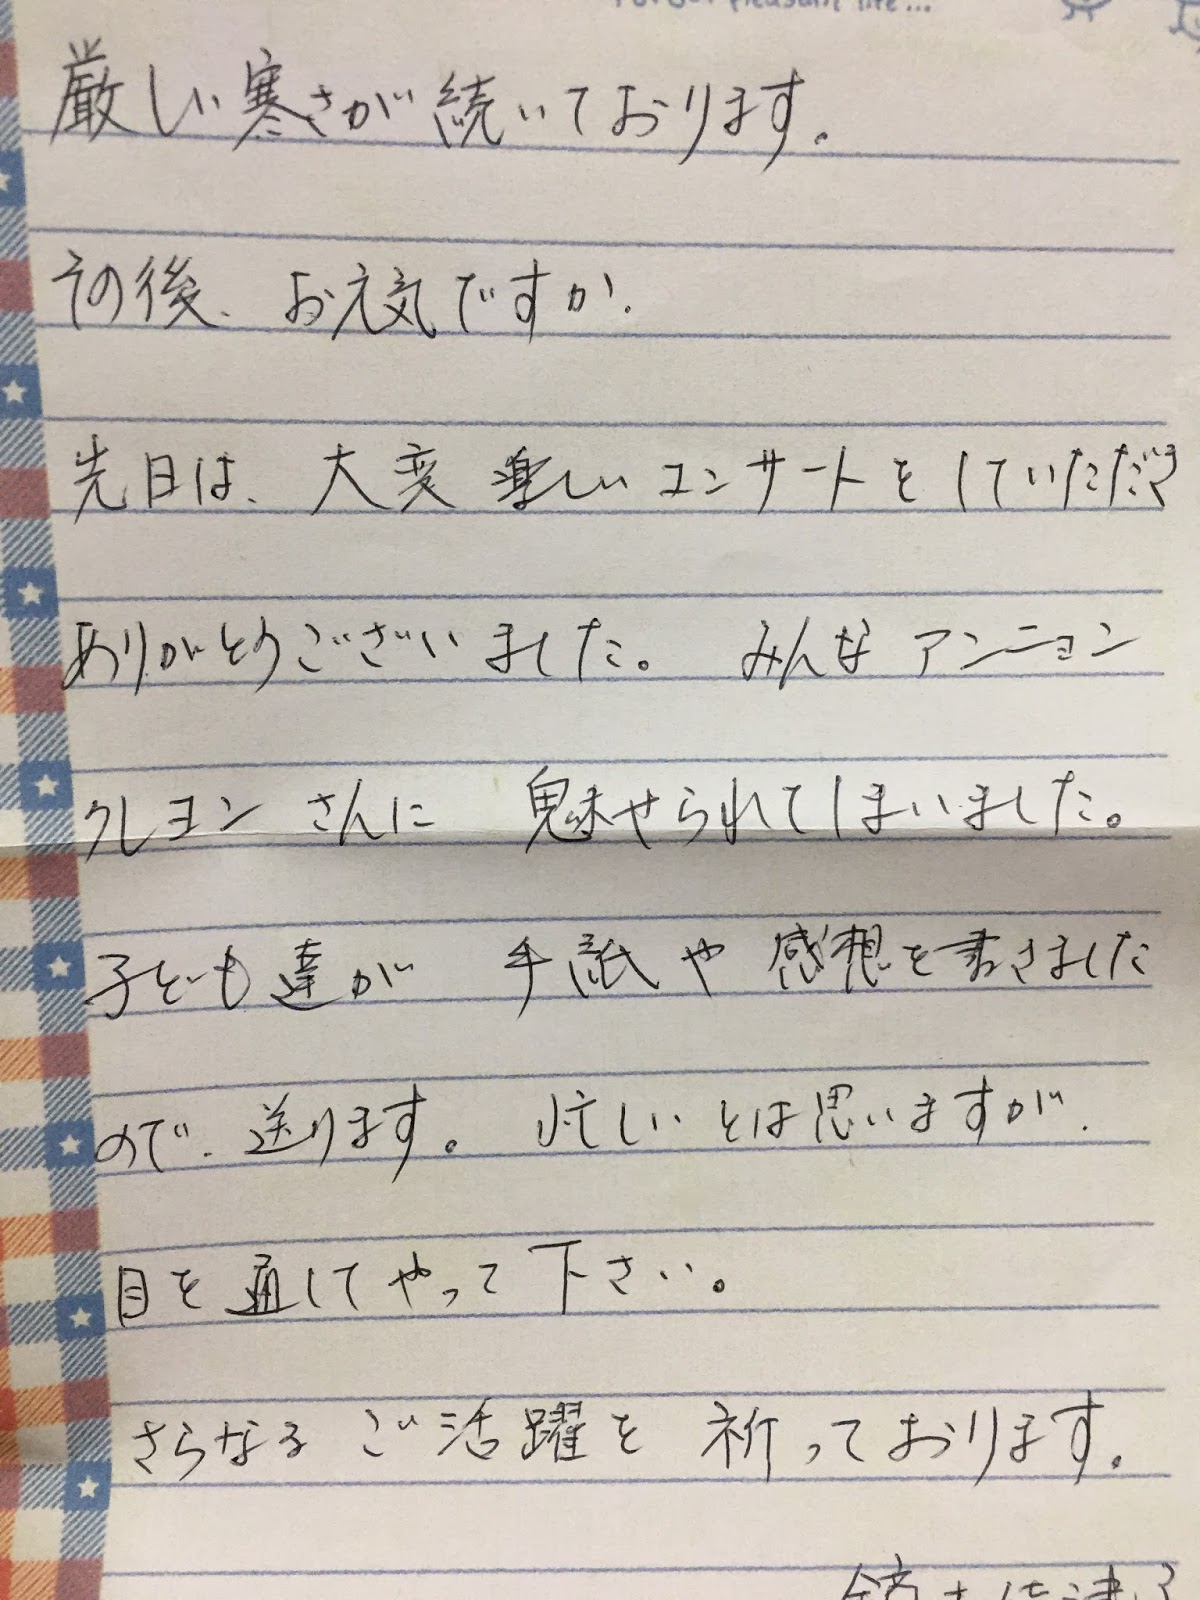 For your pleasant life...
厳しい寒さが続いております。
その後、お元気ですか.
先日は、大変楽しいコンサートをしていただき
ありがとうございました。 みんなアンニョン
クレヨン さんに 魅せられてしまいました。
子ども達が 手紙や感想を書きました
ので、送ります。 忙しいとは思いますが、
目を通してやって下さい。
さらなる ご活躍を 祈っております。